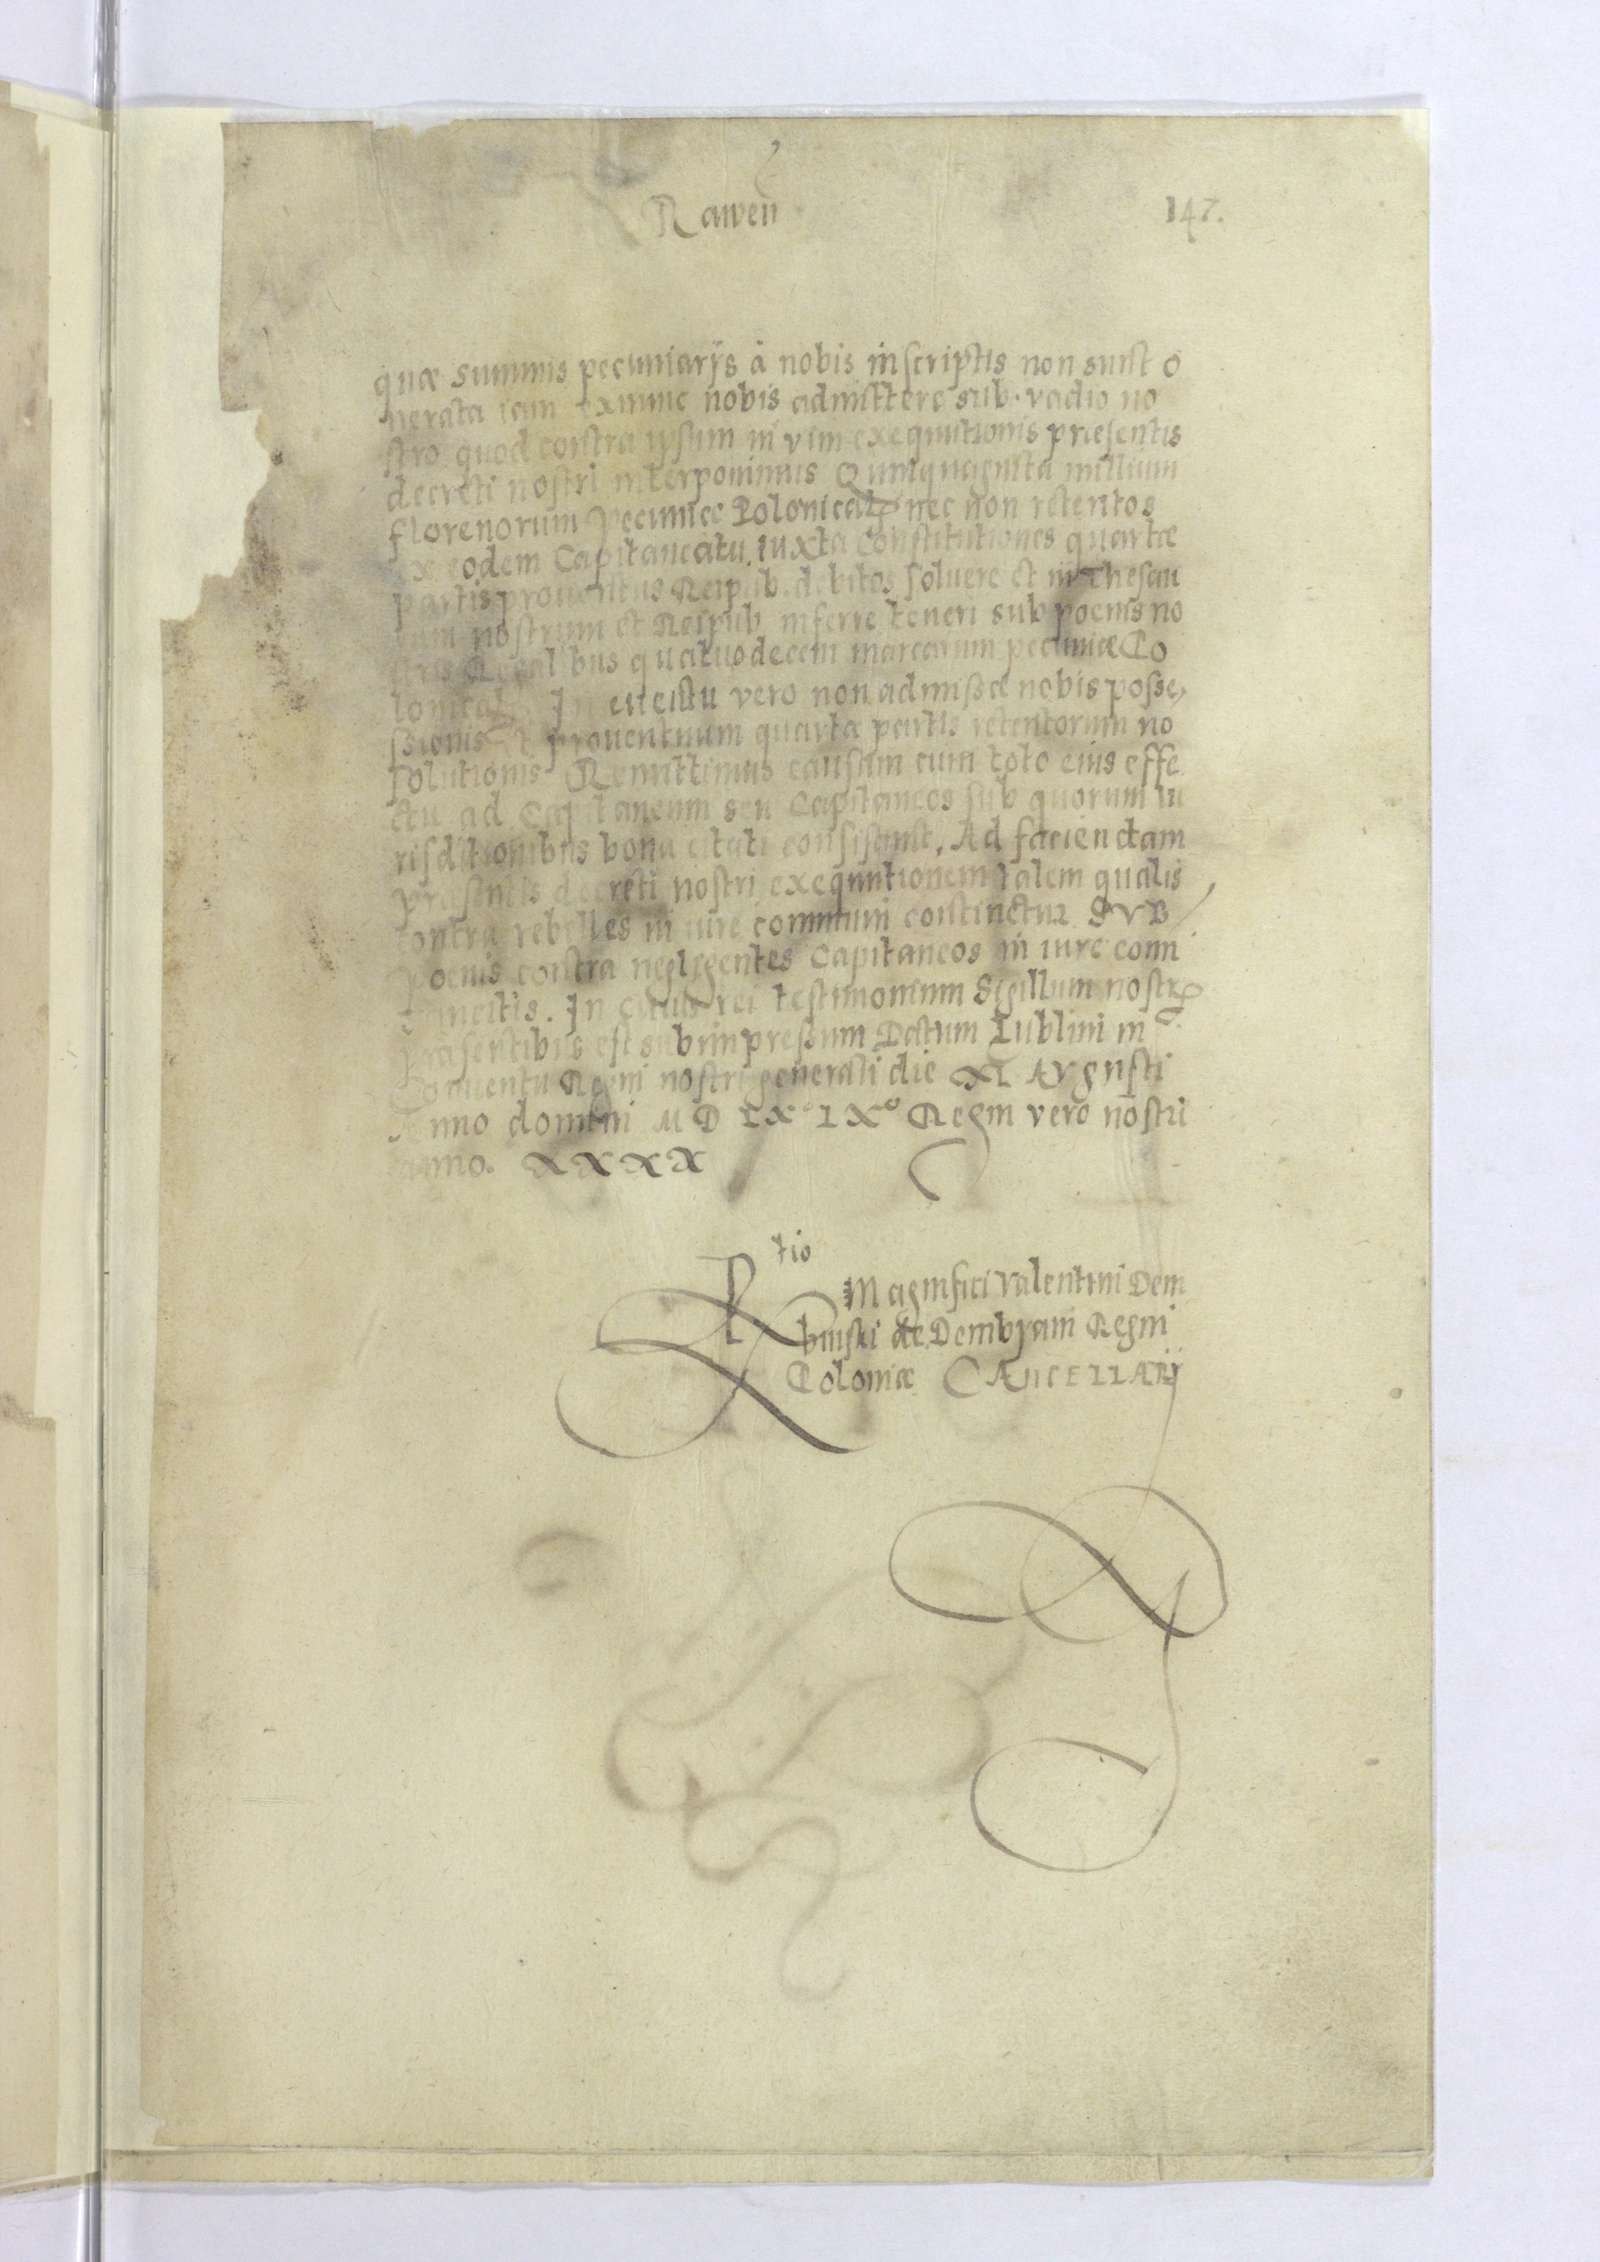 Rawen
147.
quæ summis pecuniarijs à nobis inscriptis non sunt o
nerata iam exnunc nobis admittere sub vadio no
stro quod contra ipsum in vim exequutionis præsentis
decreti nostri interponimus Quinquaginta millium
florenorum pecuniæ Polonical nec non retentos
ex eodem Capitaneatu iuxta Constitutiones quartæ
partis prouentus Reipub. debitos soluere et in Thesau
rum nostrum et Reipub. inferre teneri sub poenis no
stris Regalibus quatuordecem marcarum pecuniæ Po
lonical. In euentu vero non admissæ nobis posse,
ssionis et prouentuum quartæ partis retentorum no
solutionis Remittimus causam cum toto eius effe
ctu ad Capitaneum seu Capitaneos sub quorum iu
risditionibus bona citati consistunt, Ad faciendam
præsentis decreti nostri exequutionem talem qualis
contra rebelles in iure communi continetur SVB
poenis contra negligentes Capitaneos in iure comi
sancitis. In cuius rei testimonium Sigillum nostr
præsentibus est subimpressum Datum Lublini in
Conuentu Regni nostri generali die XI Augusti
Anno domini M D LX° IX° Regni vero nostri
anno. XXXX
Rtio
Magnifici Valentini Dem
binski de Dembyani Regni
Poloniæ CANCELLARIJ